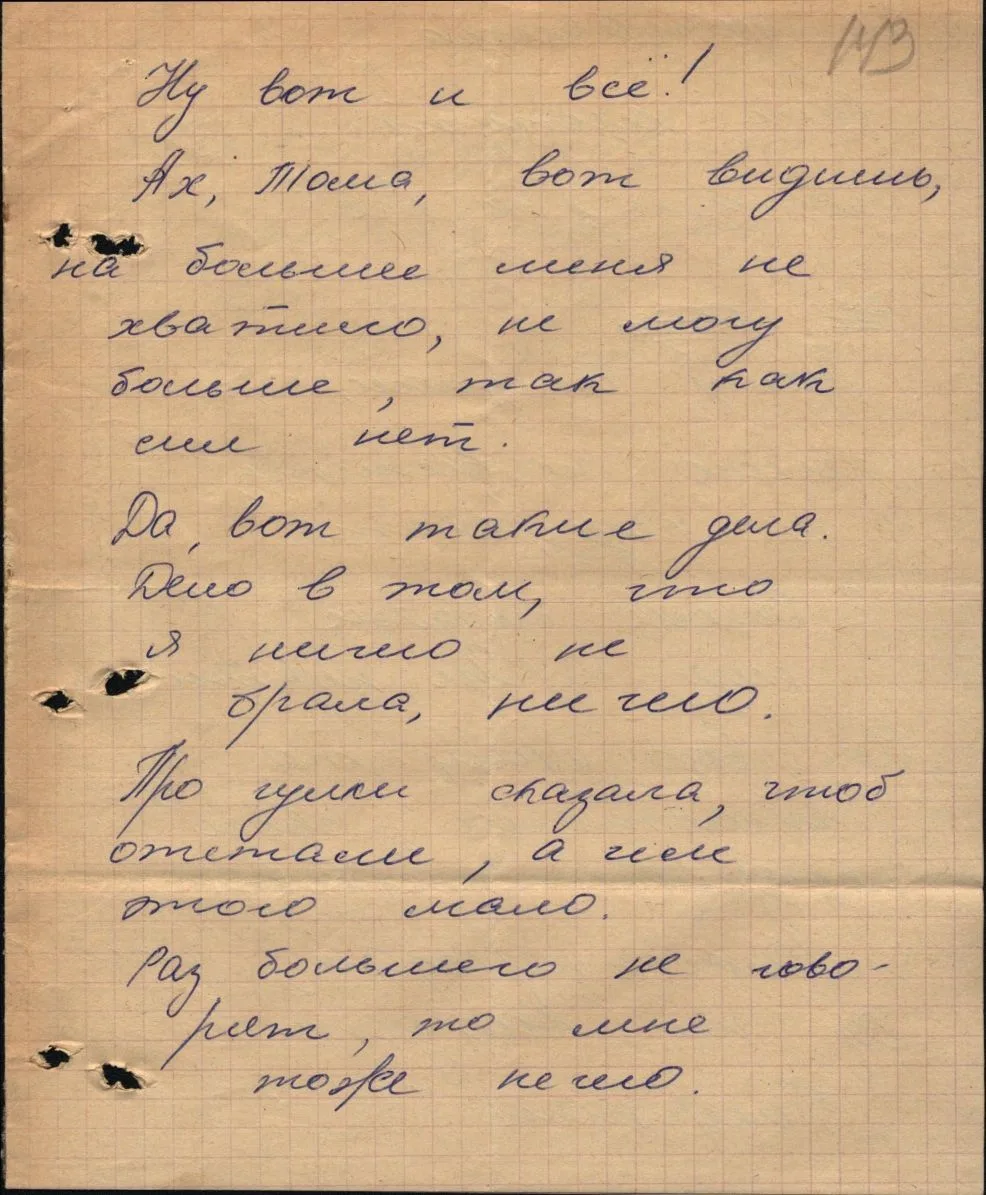 143
Ну вот и всё!
Ах, Тома, вот видишь,
на большее меня не
хватило, не могу
больше, так как
сил нет.
Да, вот такие дела.
Дело в том, что
я ничего не
брала, ничего.
Про гулки сказала, чтоб
отстали, а им
этого мало.
Раз большего не гово-
рят, то мне
тоже нечего.